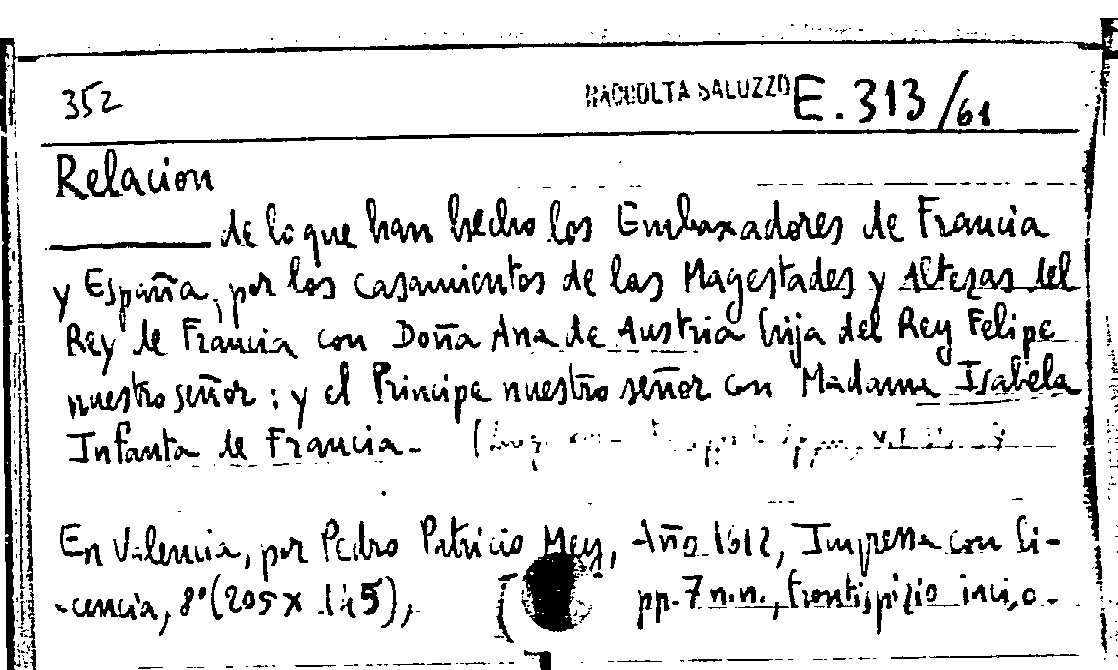 352 RACCOLTA SALUZZO E.313/61
Relacion
de lo que han hecho los Embaxadores de Francia
y España, por los casamientos de las Magestades y Altezas del
Rey de Francia con Doña Ana de Austria hija del Rey Felipe
nuestro señor: y el Principe nuestro señor con Madama Isabela
Infanta de Francia.
En Valencia, por Pedro Patricio Mey, Año 1612, Impressa con li-
cencia, 8° (205 x 145), pp. 7 n.n., frontispizio inciso.